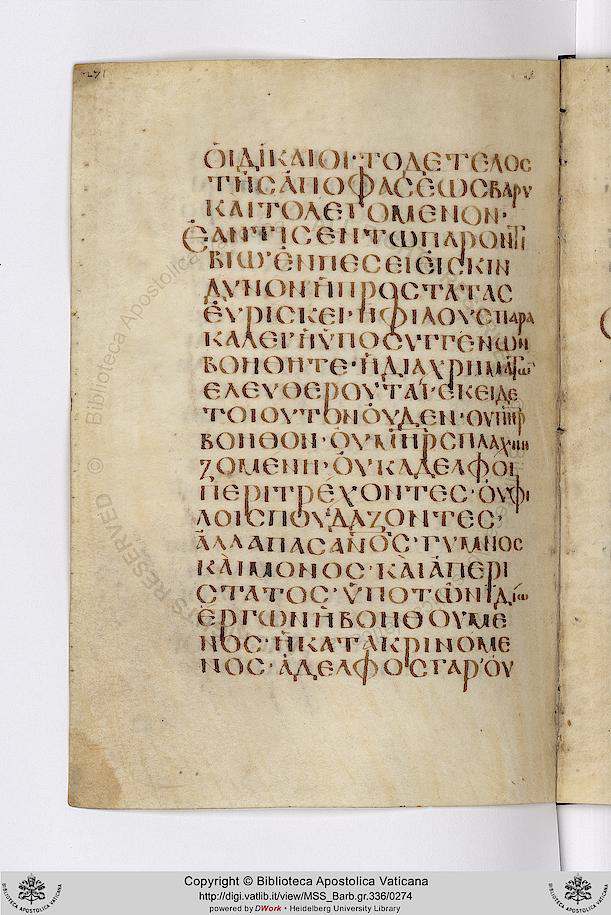 271
ὁιδίκαιοι·τοδετελος
τησἀποφασέωσβαρυ
καιτολεγομενον·
Ἐαντισεντωπαροντι
βιω·ἐνπεσειἐισκιν
δυνον·ἠπροστατασ
ἑυρισκει·ηφιλουσπαρα
καλει·ηὑποσυγγενων
βοηθητε·ηδιαχρηματων
ελευθερουται·εκειδε
τοιουτονουδεν·ουπηρ
βοηθον·ουμηρσπλαχνι
ζομενη·ὀυκαδελφοι
περιτρέχοντες·ὀυφι
λοισπουδαζοντες·
ἀλλαπασἀνος·γυμνος
κὰιμονος·κὰιἀπερι
στατος·ὑποτωνἰδίω
ἐργωνἠβοηθουμε
νος·ἠκατακρινομε
νος·ἀδελφοσγαρ'ου
© Biblioteca Apostolica
RESERVED
Copyright © Biblioteca Apostolica Vaticana
http://digi.vatlib.it/view/MSS_Barb.gr.336/0274
powered by DWork - Heidelberg University Library